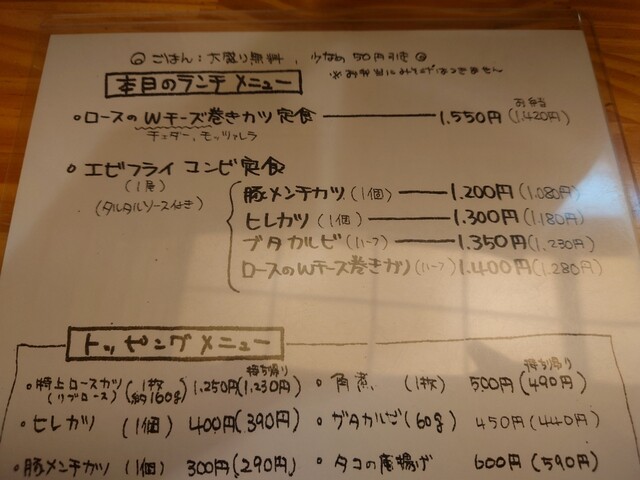 ◎ ごはん：大盛り無料 、 少なめ 50円引き ◎
※お弁当にみそ汁はつきません
本日のランチメニュー
お弁当
・ロースのWチーズ巻きカツ定食 1.550円(1.420円)
チェダー、モッツァレラ
・エビフライ コンビ定食
(1尾)
(タルタルソース付き)
豚メンチカツ(1個) 1.200円(1.080円)
ヒレカツ(1個) 1.300円(1.180円)
ブタカルビ(ハーフ) 1.350円(1.230円)
ロースのWチーズ巻きカツ(ハーフ) 1.400円(1.280円)
トッピングメニュー
持ち帰り
・特上ロースカツ(1枚 約160g) 1.250円(1.230円)
(リブロース)
・ヒレカツ (1個) 400円(390円)
・豚メンチカツ (1個) 300円(290円)
持ち帰り
・角煮 (1枚) 500円(490円)
・ブタカルビ(60g) 450円(440円)
・タコの唐揚げ 600円(590円)